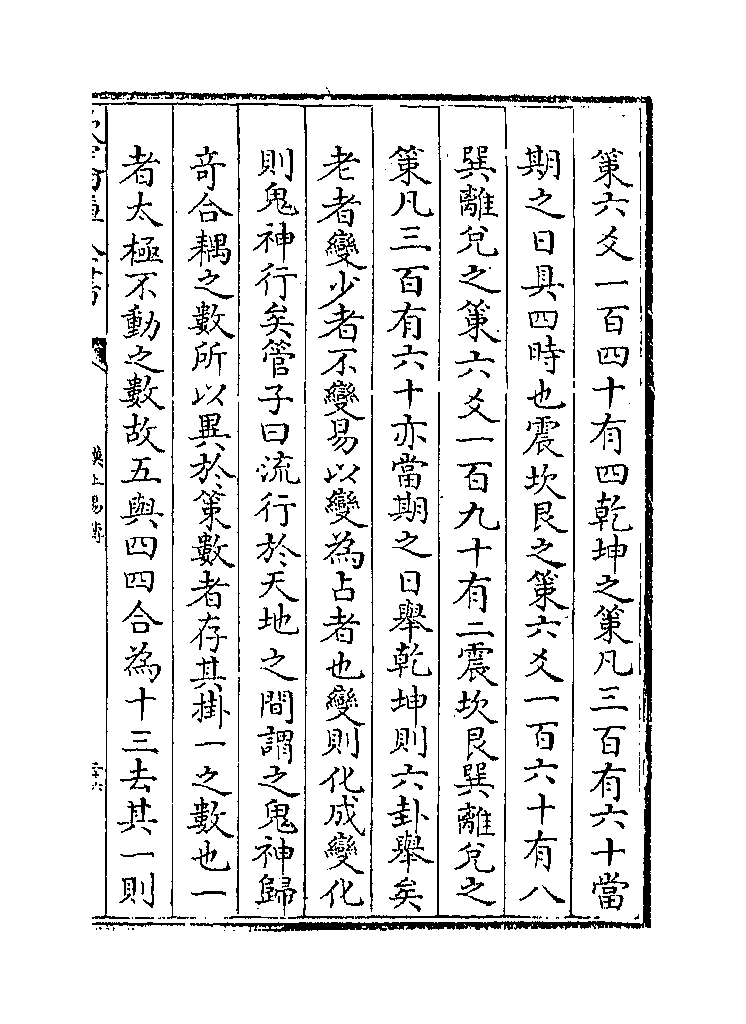 策六爻一百四十有四乾坤之策凡三百有六十當
期之日具四時也震坎艮之策六爻一百六十有八
巽離兌之策六爻一百九十有二震坎艮巽離兌之
策凡三百有六十亦當期之日舉乾坤則六卦舉矣
老者變少者不變易以變為占者也變則化成變化
則鬼神行矣管子曰流行於天地之間謂之鬼神歸
竒合耦之數所以異於策數者存其掛一之數也一
者太極不動之數故五與四四合為十三去其一則
漢上易傳
三十六